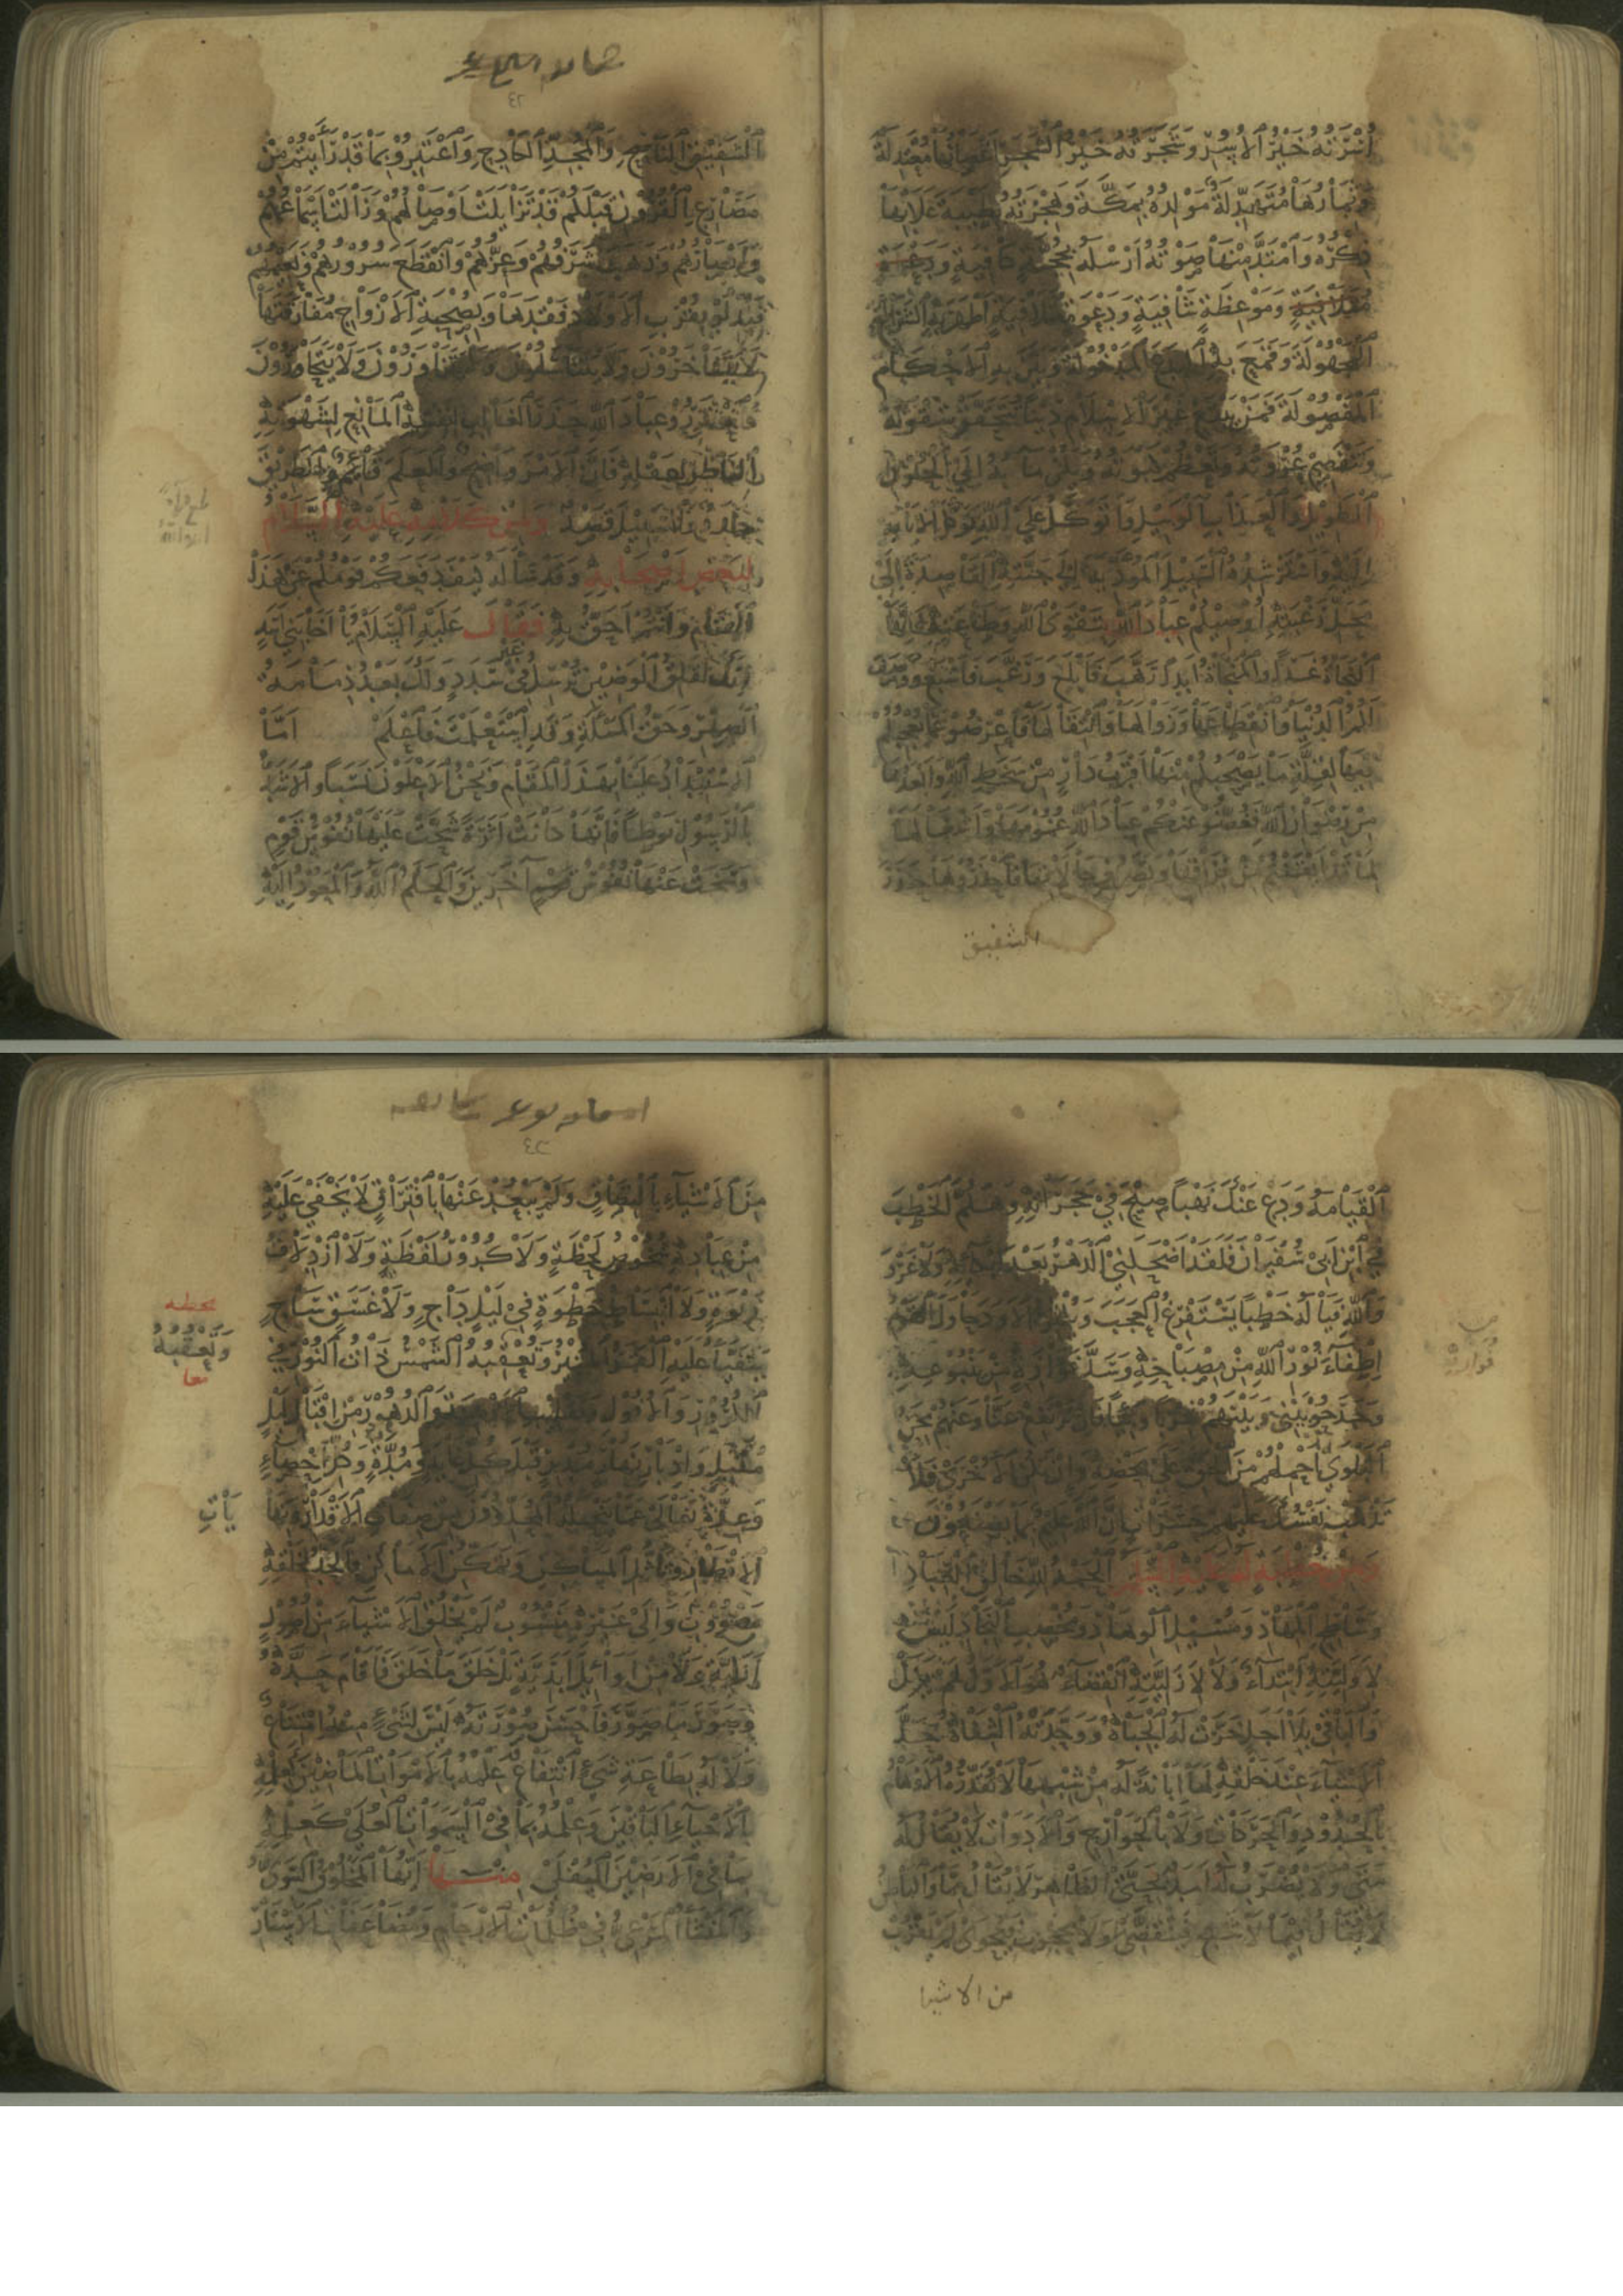 أُسْرَتُهُ خَيْرُ الْأُسَرِ وَشَجَرَتُهُ خَيْرُ الشَّجَرِ أَغْصَانُهَا مُعْتَدِلَةٌ
وَثِمَارُهَا مُتَهَدِّلَةٌ مَوْلِدُهُ بِمَكَّةَ وَهِجْرَتُهُ بِطَيْبَةَ عَلَا بِهَا
ذِكْرُهُ وَامْتَدَّ مِنْهَا صَوْتُهُ أَرْسَلَهُ بِحُجَّةٍ كَافِيَةٍ
وَمَوْعِظَةٍ شَافِيَةٍ وَدَعْوَةٍ مُتَلَافِيَةٍ أَظْهَرَ بِهِ الشَّرَائِعَ
الْمَجْهُولَةَ وَقَمَعَ بِهِ الْبِدَعَ الْمَدْخُولَةَ وَبَيَّنَ بِهِ الْأَحْكَامَ
الْمَفْصُولَةَ فَمَنْ يَبْتَغِ غَيْرَ الْإِسْلَامِ دِينًا تَتَحَقَّقْ شِقْوَتُهُ
وَتَنْفَصِمْ عُرْوَتُهُ وَتَعْظُمْ كَبْوَتُهُ وَيَكُنْ مَآبُهُ إِلَى الْحُزْنِ
الطَّوِيلِ وَالْعَذَابِ الْوَبِيلِ وَأَتَوَكَّلُ عَلَى اللَّهِ تَوَكُّلَ الْإِنَابَةِ
إِلَيْهِ وَأَسْتَرْشِدُهُ السَّبِيلَ الْمُؤَدِّيَةَ إِلَى جَنَّتِهِ الْقَاصِدَةَ إِلَى
مَحَلِّ رَغْبَتِهِ أُوصِيكُمْ عِبَادَ اللَّهِ بِتَقْوَى اللَّهِ وَطَاعَتِهِ فَإِنَّهَا
النَّجَاةُ غَدًا وَالْمَنْجَاةُ أَبَدًا رَهَّبَ فَأَبْلَغَ وَرَغَّبَ فَأَسْبَغَ وَوَصَفَ
لَكُمُ الدُّنْيَا وَانْقِطَاعَهَا وَزَوَالَهَا وَانْتِقَالَهَا فَأَعْرِضُوا عَمَّا يُعْجِبُكُمْ
فِيهَا لِقِلَّةِ مَا يَصْحَبُكُمْ مِنْهَا أَقْرَبُ دَارٍ مِنْ سَخَطِ اللَّهِ وَأَبْعَدُهَا
مِنْ رِضْوَانِ اللَّهِ فَغُضُّوا عَنْكُمْ عِبَادَ اللَّهِ غُمُومَهَا وَأَشْغَالَهَا
لِمَا قَدْ أَيْقَنْتُمْ مِنْ فِرَاقِهَا وَتَصَرُّفِ حَالَاتِهَا فَاحْذَرُوهَا حَذَرَ
الشفيق
الشَّفِيقِ النَّاصِحِ وَالْمُجِدِّ الْكَادِحِ وَاعْتَبِرُوا بِمَا قَدْ رَأَيْتُمْ مِنْ
مَصَارِعِ الْقُرُونِ قَبْلَكُمْ قَدْ تَزَايَلَتْ أَوْصَالُهُمْ وَزَالَتْ أَسْمَاعُهُمْ
وَأَبْصَارُهُمْ وَذَهَبَ شَرَفُهُمْ وَعِزُّهُمْ وَانْقَطَعَ سُرُورُهُمْ وَنَعِيمُهُمْ
فَبُدِّلُوا بِقُرْبِ الْأَوْلَادِ فَقْدَهَا وَبِصُحْبَةِ الْأَزْوَاجِ مُفَارَقَتَهَا
لَا يَتَفَاخَرُونَ وَلَا يَتَنَاسَلُونَ وَلَا يَتَزَاوَرُونَ وَلَا يَتَجَاوَرُونَ
فَاحْذَرُوا عِبَادَ اللَّهِ حَذَرَ الْغَالِبِ لِنَفْسِهِ الْمَانِعِ لِشَهْوَتِهِ
النَّاظِرِ بِعَقْلِهِ فَإِنَّ الْأَمْرَ وَاضِحٌ وَالْعَلَمَ قَائِمٌ وَالطَّرِيقَ
جَدَدٌ وَالسَّبِيلَ قَصْدٌ وَمِنْ كَلَامٍ لَهُ عَلَيْهِ السَّلَامُ
لِبَعْضِ أَصْحَابِهِ وَقَدْ سَأَلَهُ كَيْفَ دَفَعَكُمْ قَوْمُكُمْ عَنْ هَذَا
الْمَقَامِ وَأَنْتُمْ أَحَقُّ بِهِ فَقَالَ عَلَيْهِ السَّلَامُ يَا أَخَا بَنِي أَسَدٍ
إِنَّكَ لَقَلِقُ الْوَضِينِ تُرْسِلُ فِي غَيْرِ سَدَدٍ وَلَكَ بَعْدُ ذِمَامَةُ
الصِّهْرِ وَحَقُّ الْمَسْأَلَةِ وَقَدِ اسْتَعْلَمْتَ فَاعْلَمْ أَمَّا
الِاسْتِبْدَادُ عَلَيْنَا بِهَذَا الْمَقَامِ وَنَحْنُ الْأَعْلَوْنَ نَسَبًا وَالْأَشَدُّونَ
بِالرَّسُولِ نَوْطًا فَإِنَّهَا كَانَتْ أَثَرَةً شَحَّتْ عَلَيْهَا نُفُوسُ قَوْمٍ
وَسَخَتْ عَنْهَا نُفُوسُ قَوْمٍ آخَرِينَ وَالْحَكَمُ اللَّهُ وَالْمَعْوَدُ إِلَيْهِ
الْقِيَامَةُ وَدَعْ عَنْكَ نَهْبًا صِيحَ فِي حَجَرَاتِهِ وَهَلُمَّ الْخَطْبَ
فِي ابْنِ أَبِي سُفْيَانَ فَلَقَدْ أَضْحَكَنِي الدَّهْرُ بَعْدَ إِبْكَائِهِ وَلَا غَرْوَ
وَاللَّهِ فَيَا لَهُ خَطْبًا يَسْتَفْرِغُ الْعَجَبَ وَيُكْثِرُ الْأَوَدَ حَاوَلَ الْقَوْمُ
إِطْفَاءَ نُورِ اللَّهِ مِنْ مِصْبَاحِهِ وَسَدَّ فَوَّارِهِ مِنْ يَنْبُوعِهِ
وَجَدَحُوا بَيْنِي وَبَيْنَهُمْ شِرْبًا وَبِيئًا فَإِنْ تَرْتَفِعْ عَنَّا وَعَنْهُمْ مِحَنُ
الْبَلْوَى أَحْمِلْهُمْ مِنَ الْحَقِّ عَلَى مَحْضِهِ وَإِنْ تَكُنِ الْأُخْرَى فَلَا
تَذْهَبْ نَفْسُكَ عَلَيْهِمْ حَسَرَاتٍ إِنَّ اللَّهَ عَلِيمٌ بِمَا يَصْنَعُونَ
وَمِنْ خُطْبَةٍ لَهُ عَلَيْهِ السَّلَامُ الْحَمْدُ لِلَّهِ خَالِقِ الْعِبَادِ
وَسَاطِحِ الْمِهَادِ وَمُسِيلِ الْوِهَادِ وَمُخْصِبِ النِّجَادِ لَيْسَ
لِأَوَّلِيَّتِهِ ابْتِدَاءٌ وَلَا لِأَزَلِيَّتِهِ انْقِضَاءٌ هُوَ الْأَوَّلُ لَمْ يَزَلْ
وَالْبَاقِي بِلَا أَجَلٍ خَرَّتْ لَهُ الْجِبَاهُ وَوَحَّدَتْهُ الشِّفَاهُ حَدَّ
الْأَشْيَاءَ عِنْدَ خَلْقِهِ لَهَا إِبَانَةً لَهُ مِنْ شَبَهِهَا لَا تُقَدِّرُهُ الْأَوْهَامُ
بِالْحُدُودِ وَالْحَرَكَاتِ وَلَا بِالْجَوَارِحِ وَالْأَدَوَاتِ لَا يُقَالُ لَهُ
مَتَى وَلَا يُضْرَبُ لَهُ أَمَدٌ بِحَتَّى الظَّاهِرُ لَا يُقَالُ مِمَّا وَالْبَاطِنُ
لَا يُقَالُ فِيمَا لَا شَبَحٌ فَيَتَقَضَّى وَلَا مَحْجُوبٌ فَيُحْوَى لَمْ يَقْرُبْ
من الاشيا
مِنَ الْأَشْيَاءِ بِالْتِصَاقٍ وَلَمْ يَبْعُدْ عَنْهَا بِافْتِرَاقٍ لَا يَخْفَى عَلَيْهِ
مِنْ عِبَادِهِ شُخُوصُ لَحْظَةٍ وَلَا كُرُورُ لَفْظَةٍ وَلَا ازْدِلَافُ
رَبْوَةٍ وَلَا انْبِسَاطُ خُطْوَةٍ فِي لَيْلٍ دَاجٍ وَلَا غَسَقٍ سَاجٍ
يَتَفَيَّأُ عَلَيْهِ الْقَمَرُ الْمُنِيرُ وَتَعْقُبُهُ الشَّمْسُ ذَاتُ النُّورِ فِي
الْكُرُورِ وَالْأُفُولِ وَتَقْلِيبِ الْأَزْمِنَةِ وَالدُّهُورِ مِنْ إِقْبَالِ لَيْلٍ
مُقْبِلٍ وَإِدْبَارِ نَهَارٍ مُدْبِرٍ قَبْلَ كُلِّ غَايَةٍ وَمُدَّةٍ وَكُلِّ إِحْصَاءٍ
وَعِدَّةٍ تَعَالَى عَمَّا يَنْحَلُهُ الْمُحَدِّدُونَ مِنْ صِفَاتِ الْأَقْدَارِ وَنِهَايَاتِ
الْأَقْطَارِ وَتَأَثُّلِ الْمَسَاكِنِ وَتَمَكُّنِ الْأَمَاكِنِ فَالْحَدُّ لِخَلْقِهِ
مَضْرُوبٌ وَإِلَى غَيْرِهِ مَنْسُوبٌ لَمْ يَخْلُقِ الْأَشْيَاءَ مِنْ أُصُولٍ
أَزَلِيَّةٍ وَلَا مِنْ أَوَائِلَ أَبَدِيَّةٍ بَلْ خَلَقَ مَا خَلَقَ فَأَقَامَ حَدَّهُ
وَصَوَّرَ مَا صَوَّرَ فَأَحْسَنَ صُورَتَهُ لَيْسَ لِشَيْءٍ مِنْهُ امْتِنَاعٌ
وَلَا لَهُ بِطَاعَةِ شَيْءٍ انْتِفَاعٌ عِلْمُهُ بِالْأَمْوَاتِ الْمَاضِينَ كَعِلْمِهِ
بِالْأَحْيَاءِ الْبَاقِينَ وَعِلْمُهُ بِمَا فِي السَّمَوَاتِ الْعُلَى كَعِلْمِهِ
بِمَا فِي الْأَرَضِينَ السُّفْلَى مِنْهَا أَيُّهَا الْمَخْلُوقُ السَّوِيُّ
وَالْمُنْشَأُ الْمَرْعِيُّ فِي ظُلُمَاتِ الْأَرْحَامِ وَمُضَاعَفَاتِ الْأَسْتَارِ
وَتَعْقُبُهُ
معا